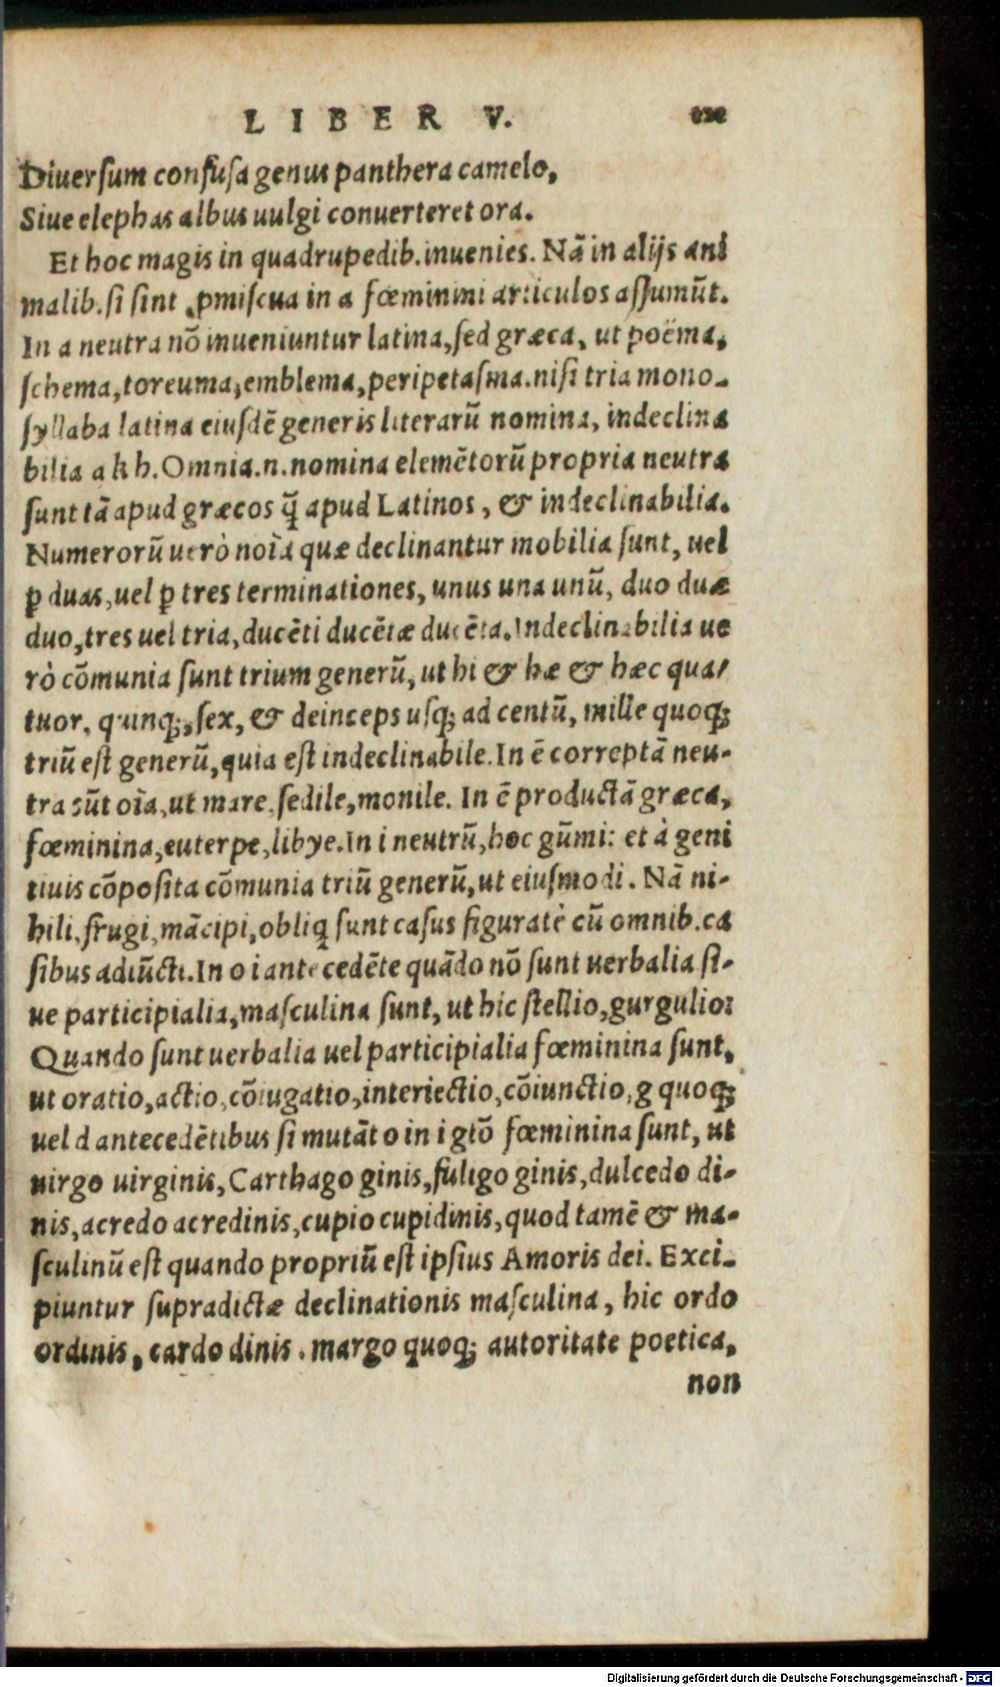 LIBER V.
Diuersum confusa genus panthera camelo,
Siue elephas albus uulgi conuerteret ora.
Et hoc magis in quadrupedib. inuenies. Nã in alijs ani
malib. si sint ꝓmiscua in a fœminini articulos assumũt.
In a neutra nõ inueniuntur latina, sed græca, ut poëma,
schema, toreuma, emblema, peripetasma. nisi tria mono-
syllaba latina eiusdẽ generis literarũ nomina, indeclina
bilia a k h. Omnia .n. nomina elemẽtorũ propria neutra
sunt tã apud græcos q̃ apud Latinos, & indeclinabilia.
Numerorũ uerò noĩa quæ declinantur mobilia sunt, uel
ꝑ duas, uel ꝑ tres terminationes, unus una unũ, duo duæ
duo, tres uel tria, ducẽti ducẽtæ ducẽta. Indeclinabilia ue
rò cõmunia sunt trium generũ, ut hi & hæ & hæc qua-
tuor, quinq;, sex, & deinceps usq; ad centũ, mille quoq;
triũ est generũ, quia est indeclinabile. In ẽ correptã neu-
tra sũt oĩa, ut mare, sedile, monile. In ẽ productã græca,
fœminina, euterpe, libye. In i neutrũ, hoc gũmi: et à geni
tiuis cõposita cõmunia triũ generũ, ut eiusmodi. Nã ni-
hili, frugi, mãcipi, obliq sunt casus figuratè cũ omnib. ca
sibus adiũcti. In o i antecedẽte quãdo nõ sunt uerbalia si-
ue participialia, masculina sunt, ut hic stellio, gurgulio:
Quando sunt uerbalia uel participialia fœminina sunt,
ut oratio, actio, cõiugatio, interiectio, cõiunctio, g quoq;
uel d antecedẽtibus si mutãt o in i gtõ fœminina sunt, ut
uirgo uirginis, Carthago ginis, fuligo ginis, dulcedo di-
nis, acredo acredinis, cupio cupidinis, quod tamẽ & ma-
sculinũ est quando propriũ est ipsius Amoris dei. Exci-
piuntur supradictæ declinationis masculina, hic ordo
ordinis, cardo dinis. margo quoq; autoritate poetica,
non
Digitalisierung gefördert durch die Deutsche Forschungsgemeinschaft - DFG